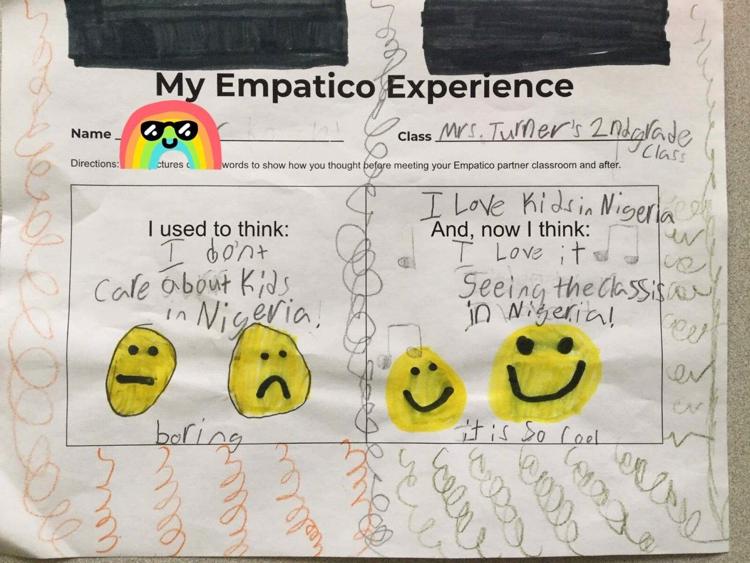 My Empatico Experience
Name
Class Mrs. Turner's 2nd grade
Class
Directions: ctures words to show how you thought before meeting your Empatico partner classroom and after.
I used to think:
I do'nt
care about Kids
in Nigeria!
boring
I Love Kids in Nigeria
And, now I think:
I Love it
Seeing the classis
in Nigeria!
it is so cool